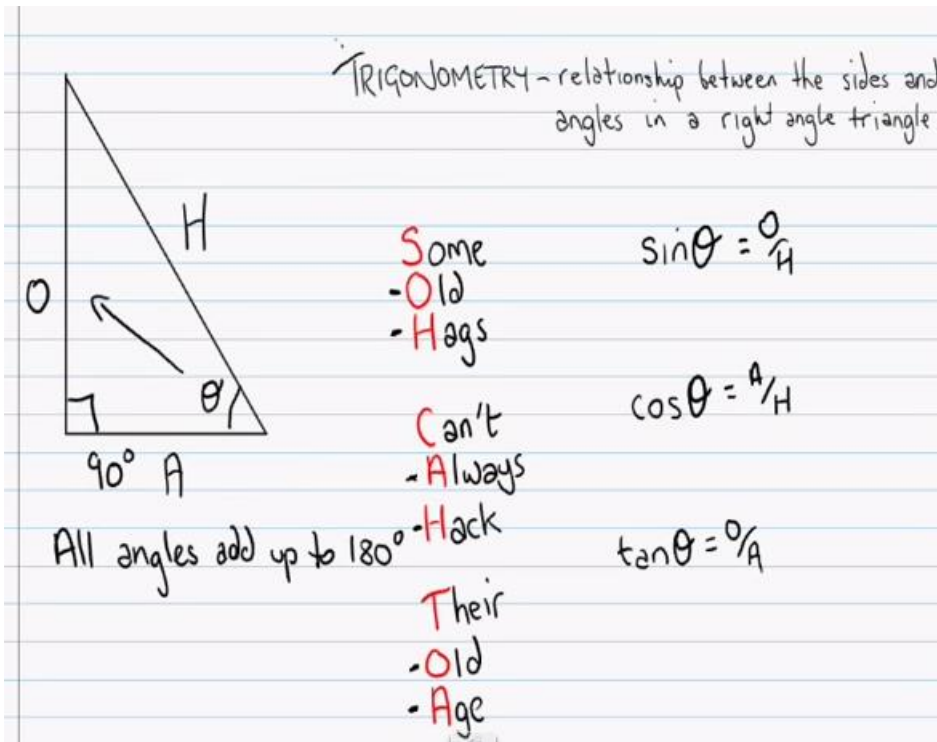 TRIGONOMETRY - relationship between the sides and
angles in a right angle triangle
H
O
θ
90° A
All angles add up to 180°
Some
-Old
-Hags
sinθ = O/H
Can't
-Always
-Hack
cosθ = A/H
Their
-Old
-Age
tanθ = O/A